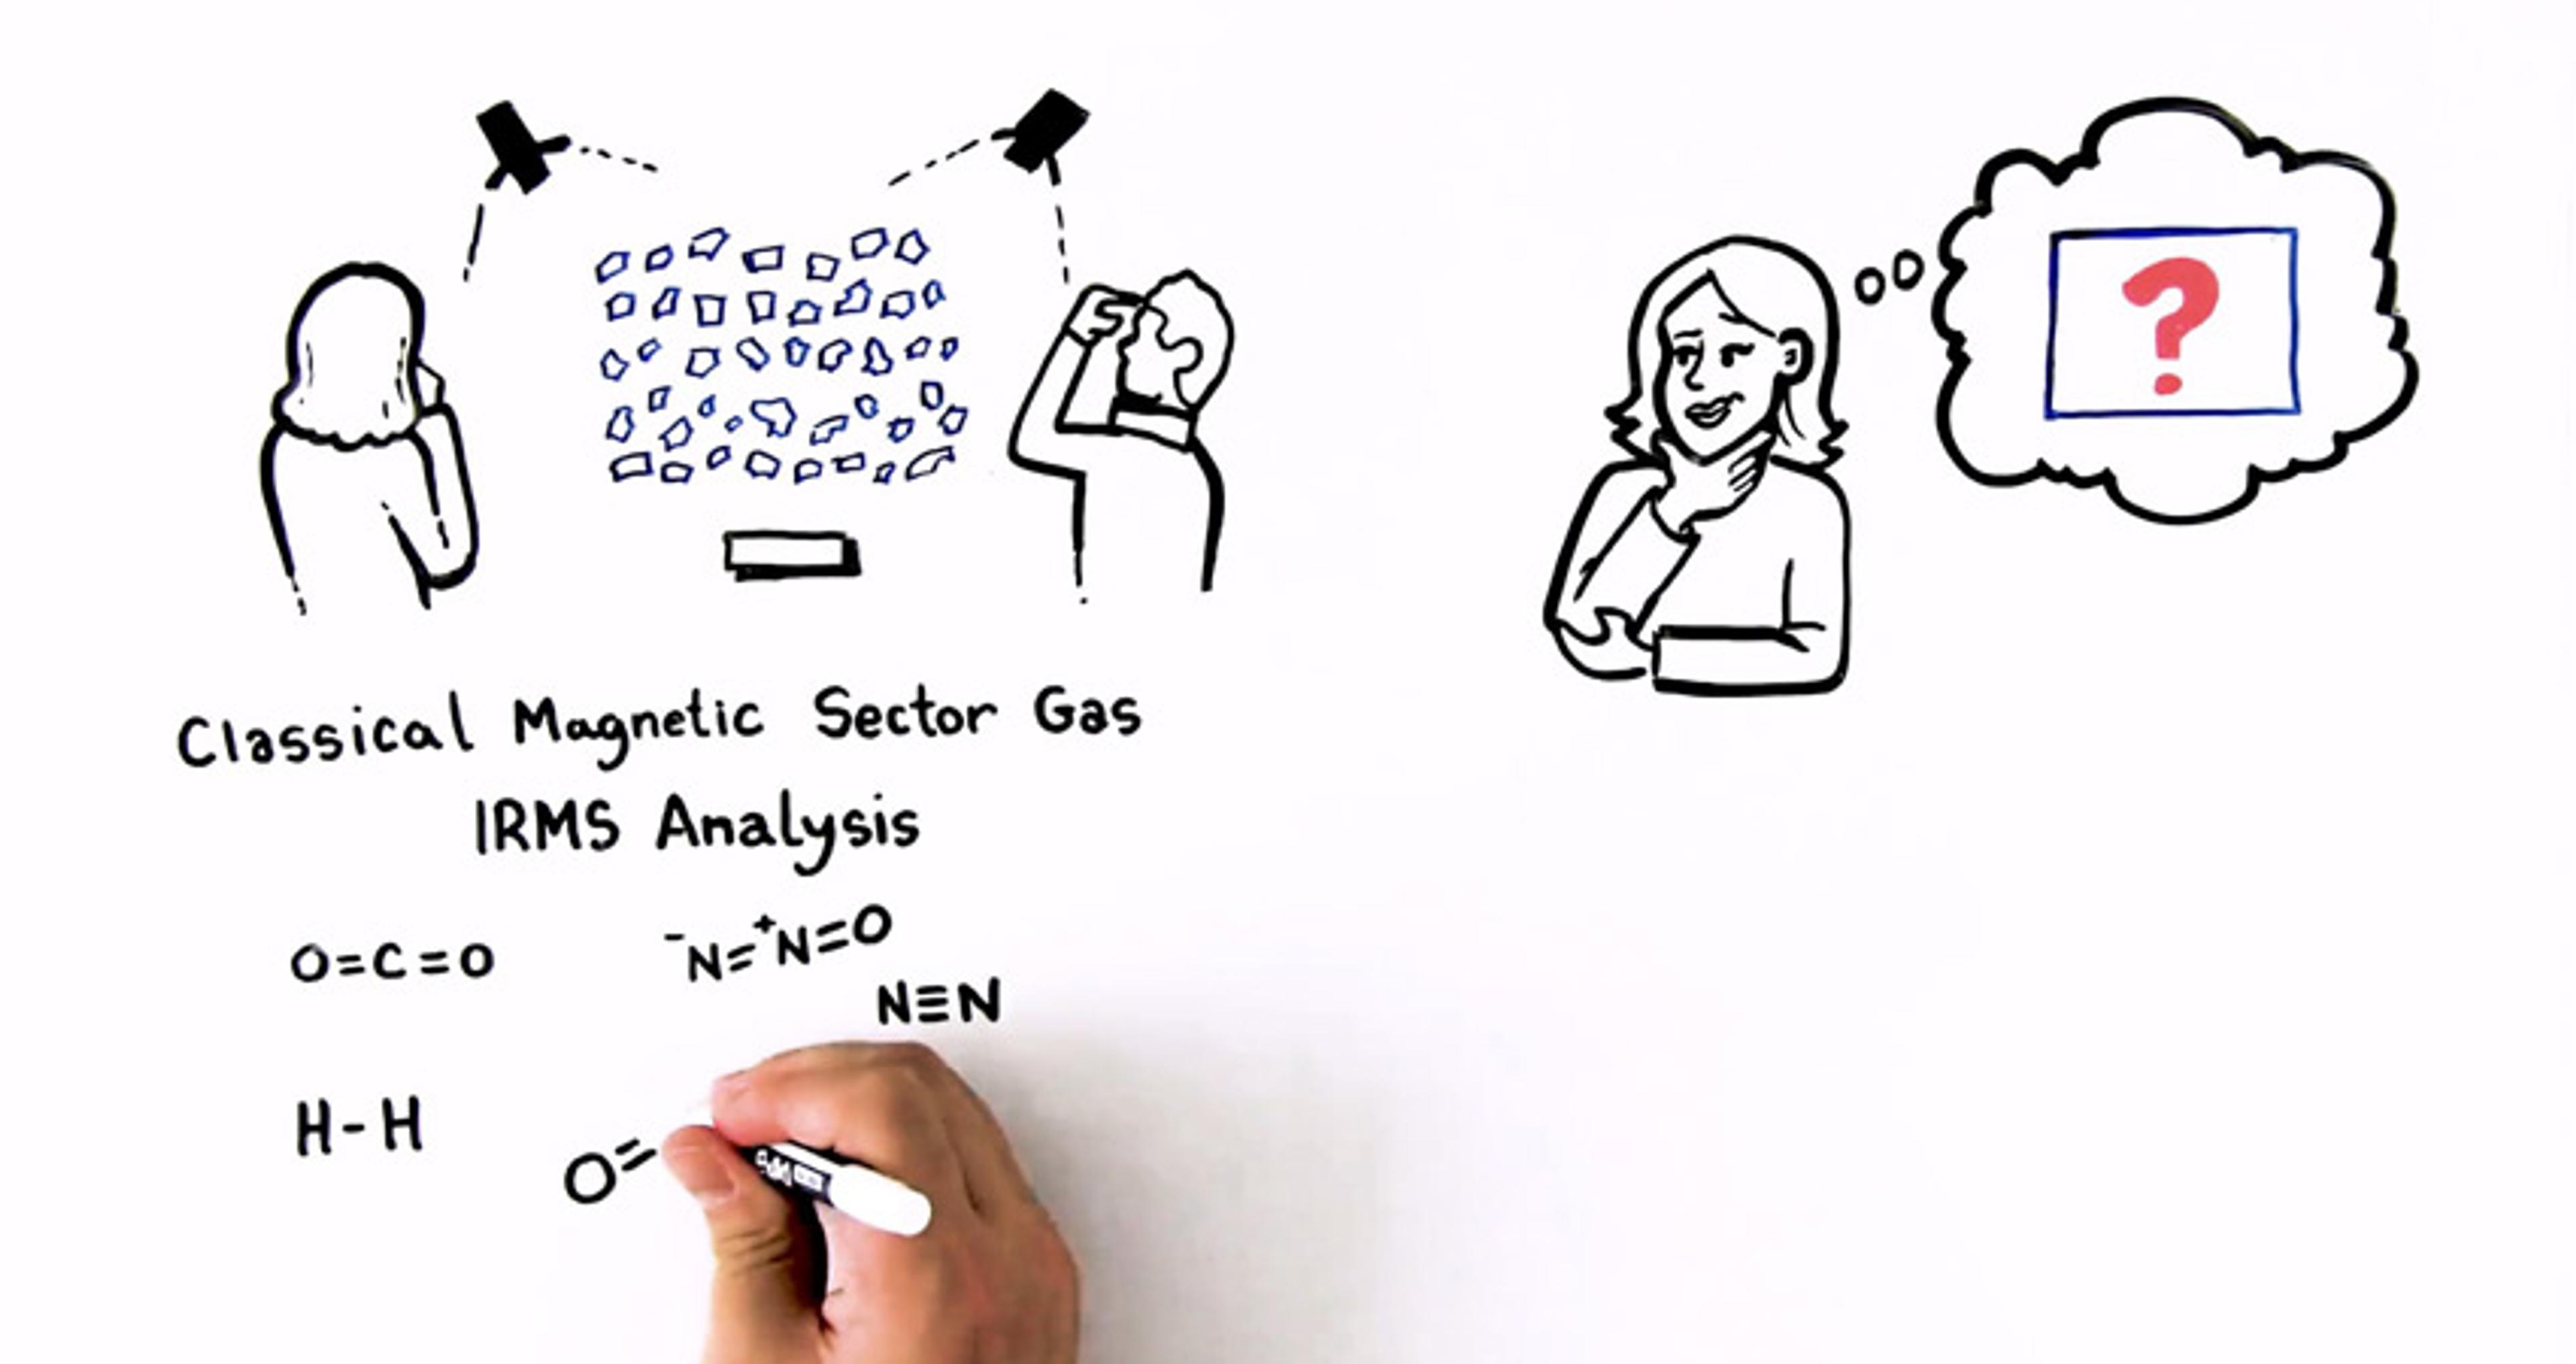 ?
Classical Magnetic Sector Gas
IRMS Analysis
O=C=O
⁻N=⁺N=O
N≡N
H-H
O=